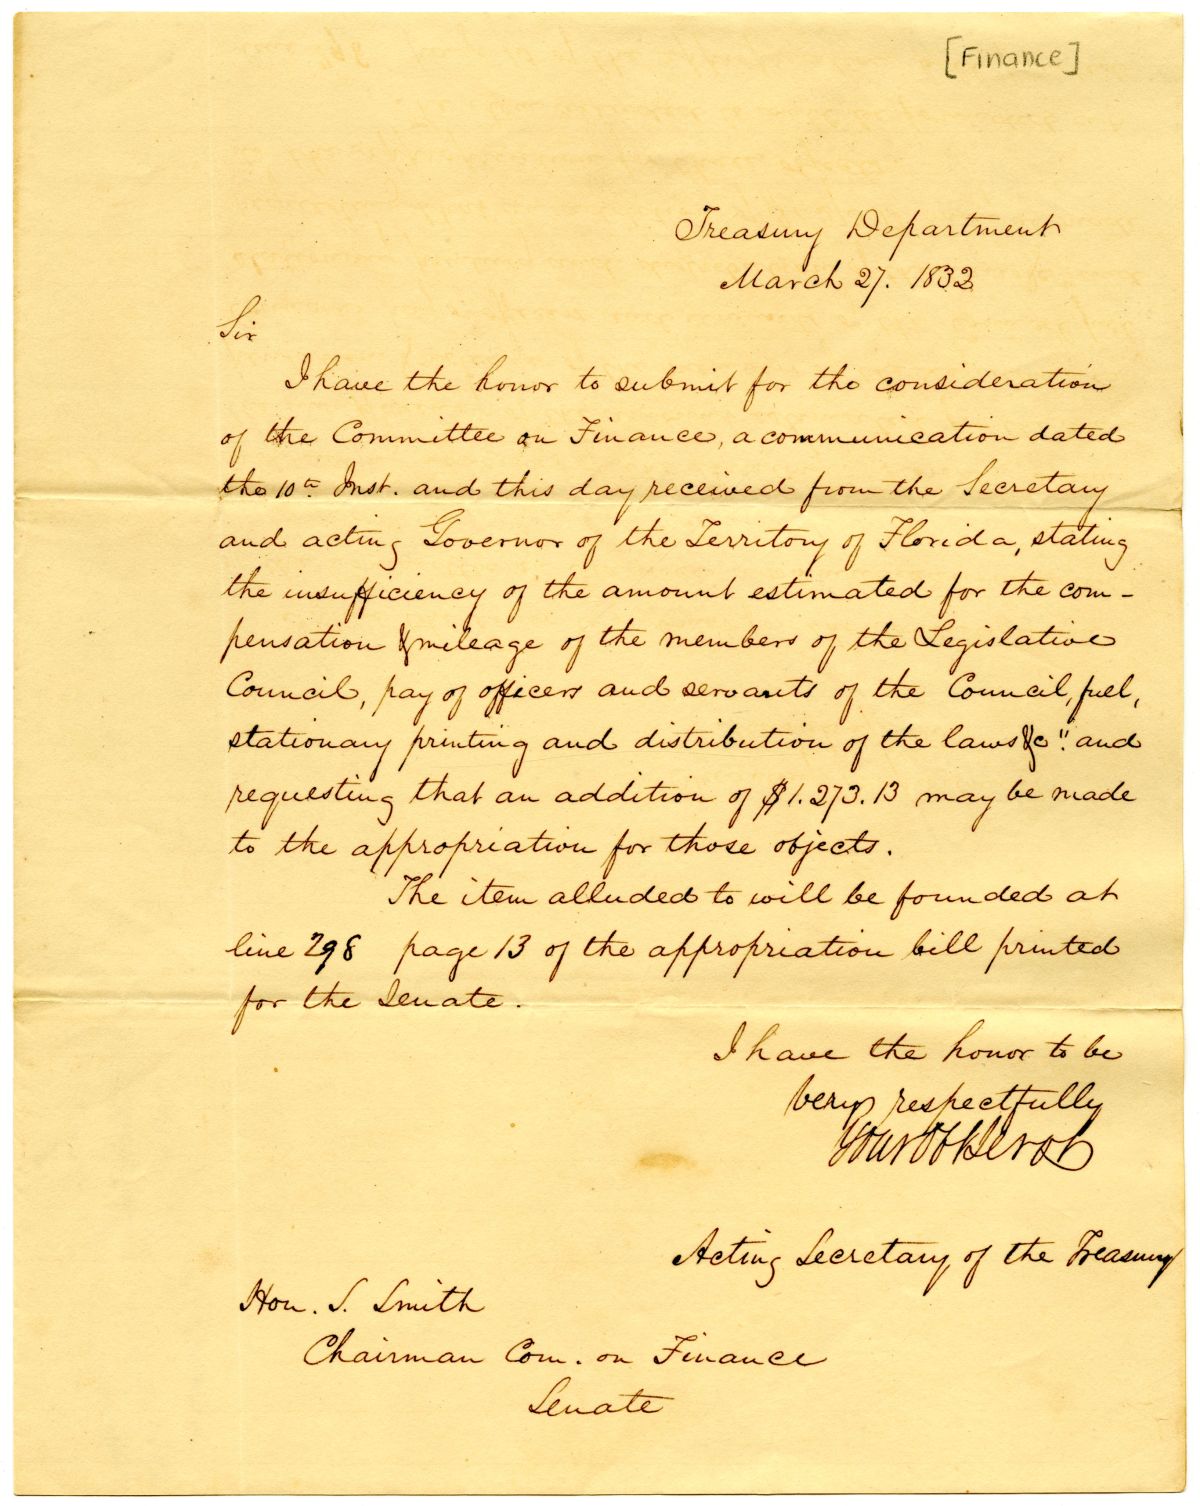 [Finance]
Treasury Department
March 27. 1832
Sir
I have the honor to submit for the consideration
of the Committee on Finance, a communication dated
the 10th Inst. and this day received from the Secretary
and acting Governor of the Territory of Florida, stating
the insufficiency of the amount estimated for the com-
pensation & mileage of the members of the Legislative
Council, pay of officers and servants of the Council, fuel,
stationary printing and distribution of the laws &c". and
requesting that an addition of $1.273.13 may be made
to the appropriation for those objects.
The item alluded to will be founded at
line 298 page 13 of the appropriation bill printed
for the Senate.
I have the honor to be
very respectfully
Your Ob Servt
Acting Secretary of the Treasury
Hon. S. Smith
Chairman Com. on Finance
Senate